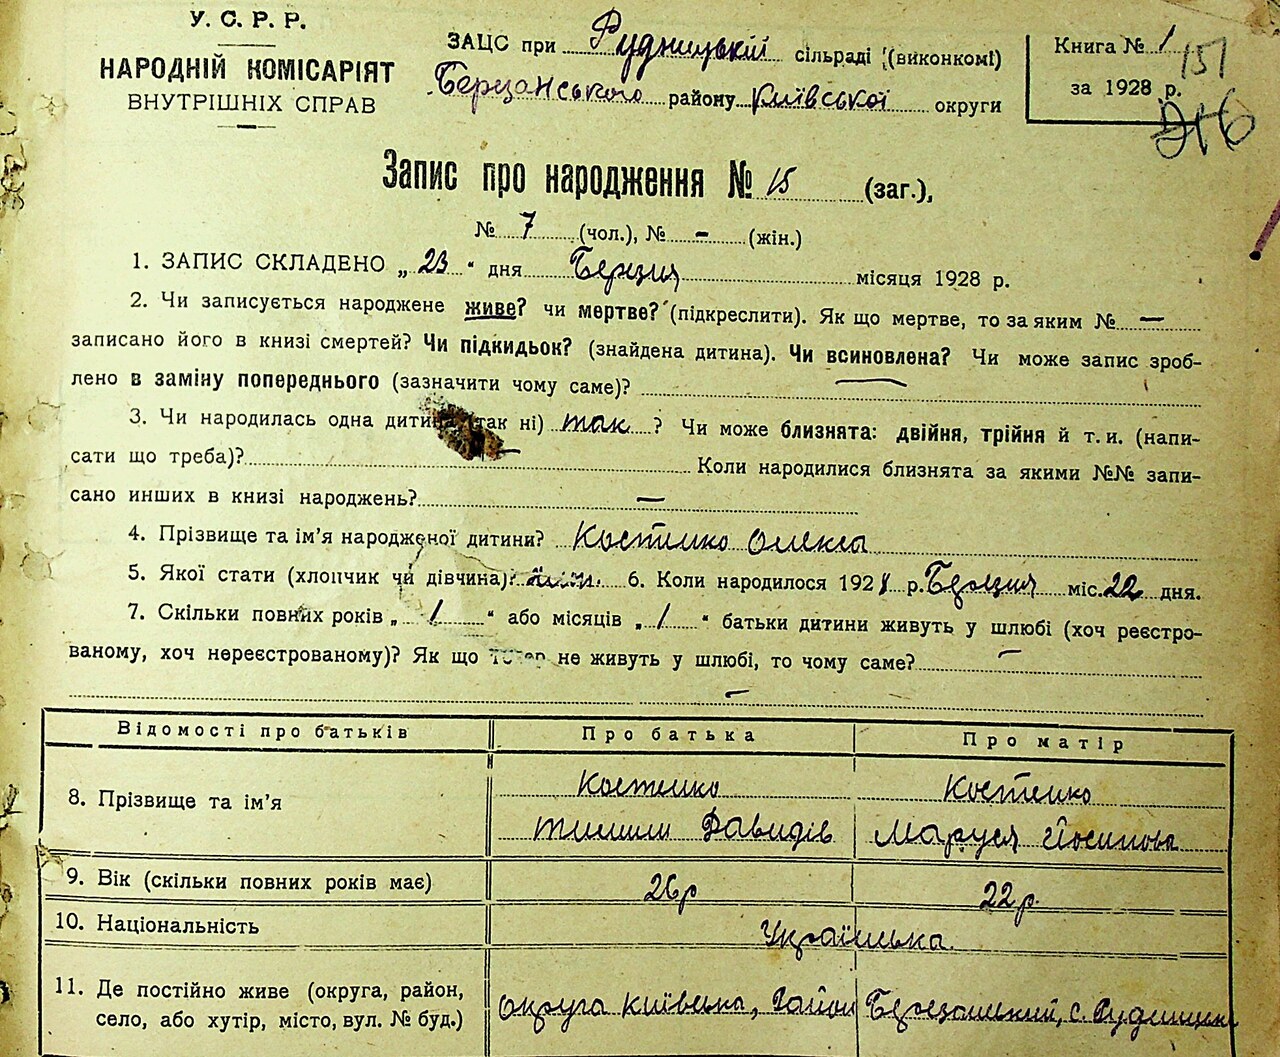 У. С. Р. Р.
НАРОДНІЙ КОМІСАРІЯТ
ВНУТРІШНІХ СПРАВ
ЗАЦС при Рудницькій сільраді (виконкомі)
Березанського району Київської округи
Книга № 1 151
за 1928 р.
Запис про народження № 15 (заг.),
№ 7 (чол.), № – (жін.)
1. ЗАПИС СКЛАДЕНО „ 23 “ дня Березня місяця 1928 р.
2. Чи записується народжене живе? чи мертве? (підкреслити). Як що мертве, то за яким № —
записано його в книзі смертей? Чи підкидьок? (знайдена дитина). Чи всиновлена? Чи може запис зроб-
лено в заміну попереднього (зазначити чому саме)?
3. Чи народилась одна дитина (так ні) так ? Чи може близнята: двійня, трійня й т. и. (напи-
сати що треба)? Коли народилися близнята за якими №№ запи-
сано инших в книзі народжень? —
4. Прізвище та ім'я народженої дитини? Костенко Олекса
5. Якої стати (хлопчик чи дівчина)? 6. Коли народилося 1928 р. Березня міс. 22 дня.
7. Скільки повних років „ / “ або місяців „ / “ батьки дитини живуть у шлюбі (хоч реєстро-
ваному, хоч нереєстрованому)? Як що не живуть у шлюбі, то чому саме? —
—
Відомості про батьків Про батька Про матір
8. Прізвище та ім'я Костенко Костенко
Давидів Маруся Йосипова
9. Вік (скільки повних років має) 26 р 22 р.
10. Національність Українська
11. Де постійно живе (округа, район,
село, або хутір, місто, вул. № буд.) округа Київська, Район Березанський, с. Рудницьке